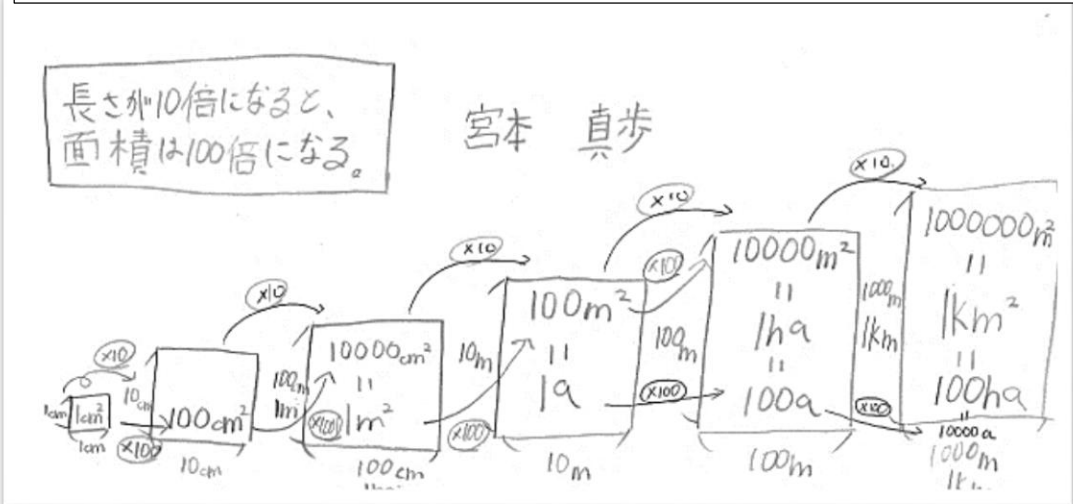 長さが10倍になると、
面積は100倍になる。
宮本 真歩
×10
×10
×10
×10
×10
1cm
1cm²
1cm
×100
10cm
100cm²
10cm
100m
1m
10000cm²
=
1m²
×100
100cm
10m
100m²
=
1a
×100
10m
×100
100m
10000m²
=
1ha
=
100a
×100
100m
1000m
1km
1000000m²
=
1km²
=
100ha
=
10000a
×100
1000m